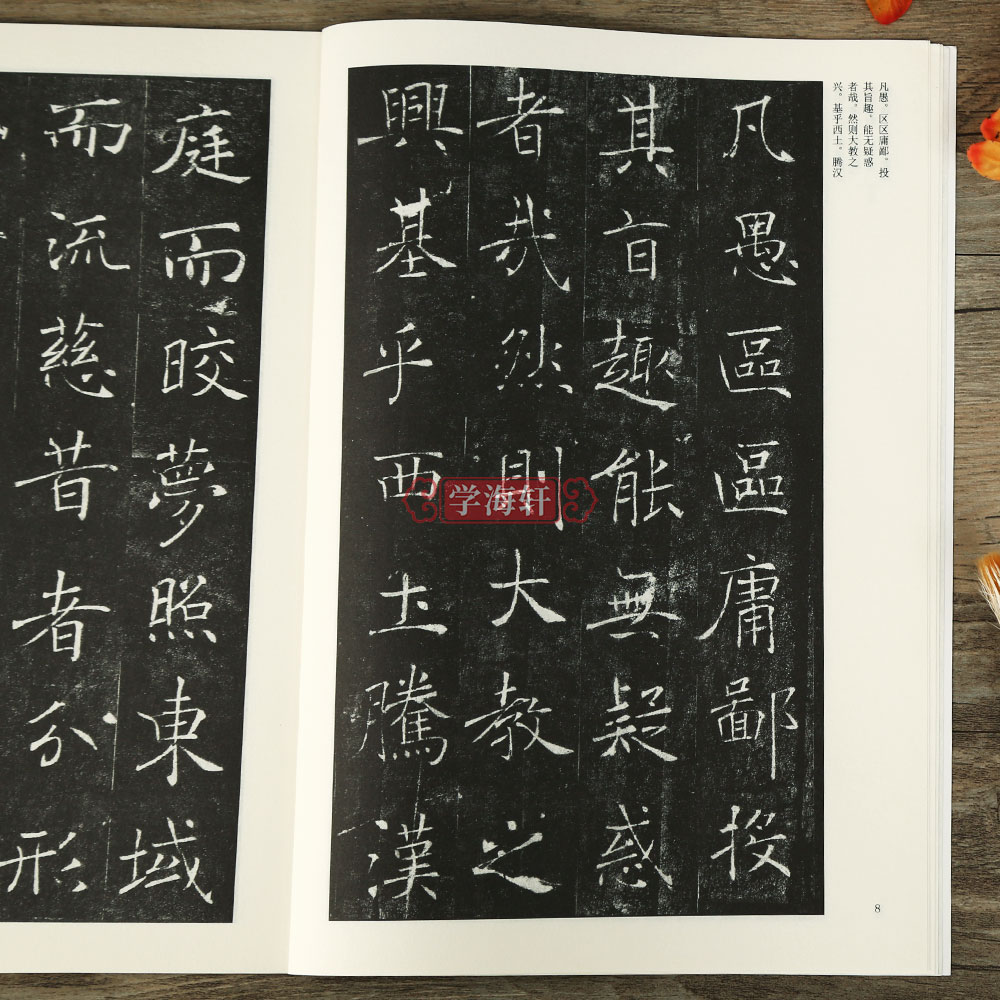 凡愚。区区庸鄙。投
其旨趣。能无疑惑
者哉。然则大教之
兴。基乎西土。腾汉
凡愚區區庸鄙投
其旨趣能無疑惑
者哉然則大教之
興基乎西土騰漢
8
庭而皎夢照東域
而流慈昔者分形
学海轩